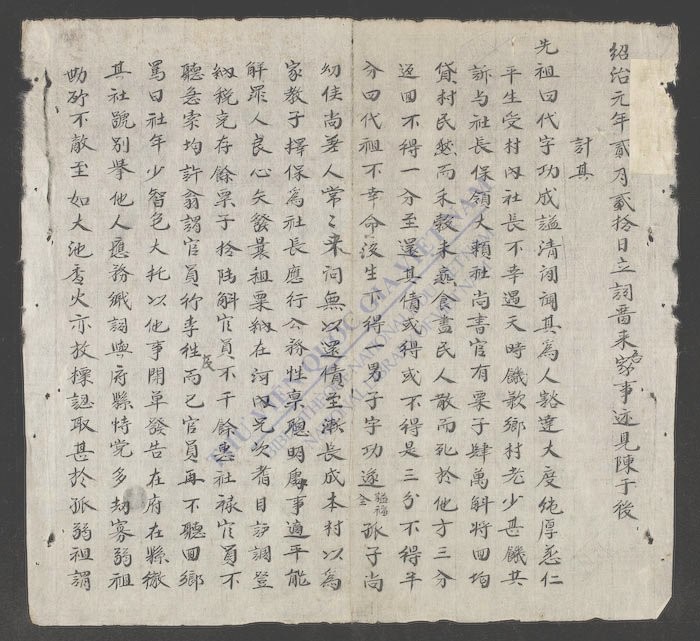 紹治元年貳月貳拾日立詞啚来家事迹見陳于後
計具
先祖曰代字功成謚清澗調其為人豁達大度純厚慈仁
平生受村內社長不幸遇天時饑歉鄉村老少甚饑其
訴与社長保領大賴社尚書官有粟子肆萬斛將回均
貸村民然而禾穀未孰食盡民人散而死於他方三分
返回不得一分至還其債或得或不得是三分不得半
分曰代祖不幸命沒生不得男子字功遂孤子尚
幼使尚垂人常〻来问無以還債至漸長成本村以為
家教子擇保為社長應行公務性稟聰明處事適平能
解眾人良心矢發曩祖粟納在河內兄次者目調登
納稅完存餘粟子拾陆斛官員不干餘愚社禄官員不
聽急索均許翁謂官員行李徃而已官員再不聽回鄉
罵曰社年少智色大托以他事開單發告在府在縣徵
其社號別舉他人應務緘詞與府縣恃党多劫寡弱祖
助斫不敵至如大池香火亦放標認取甚於孤弱祖謂
THƯ VIỆN QUỐC GIA VIỆT NAM
NATIONAL LIBRARY OF VIETNAM